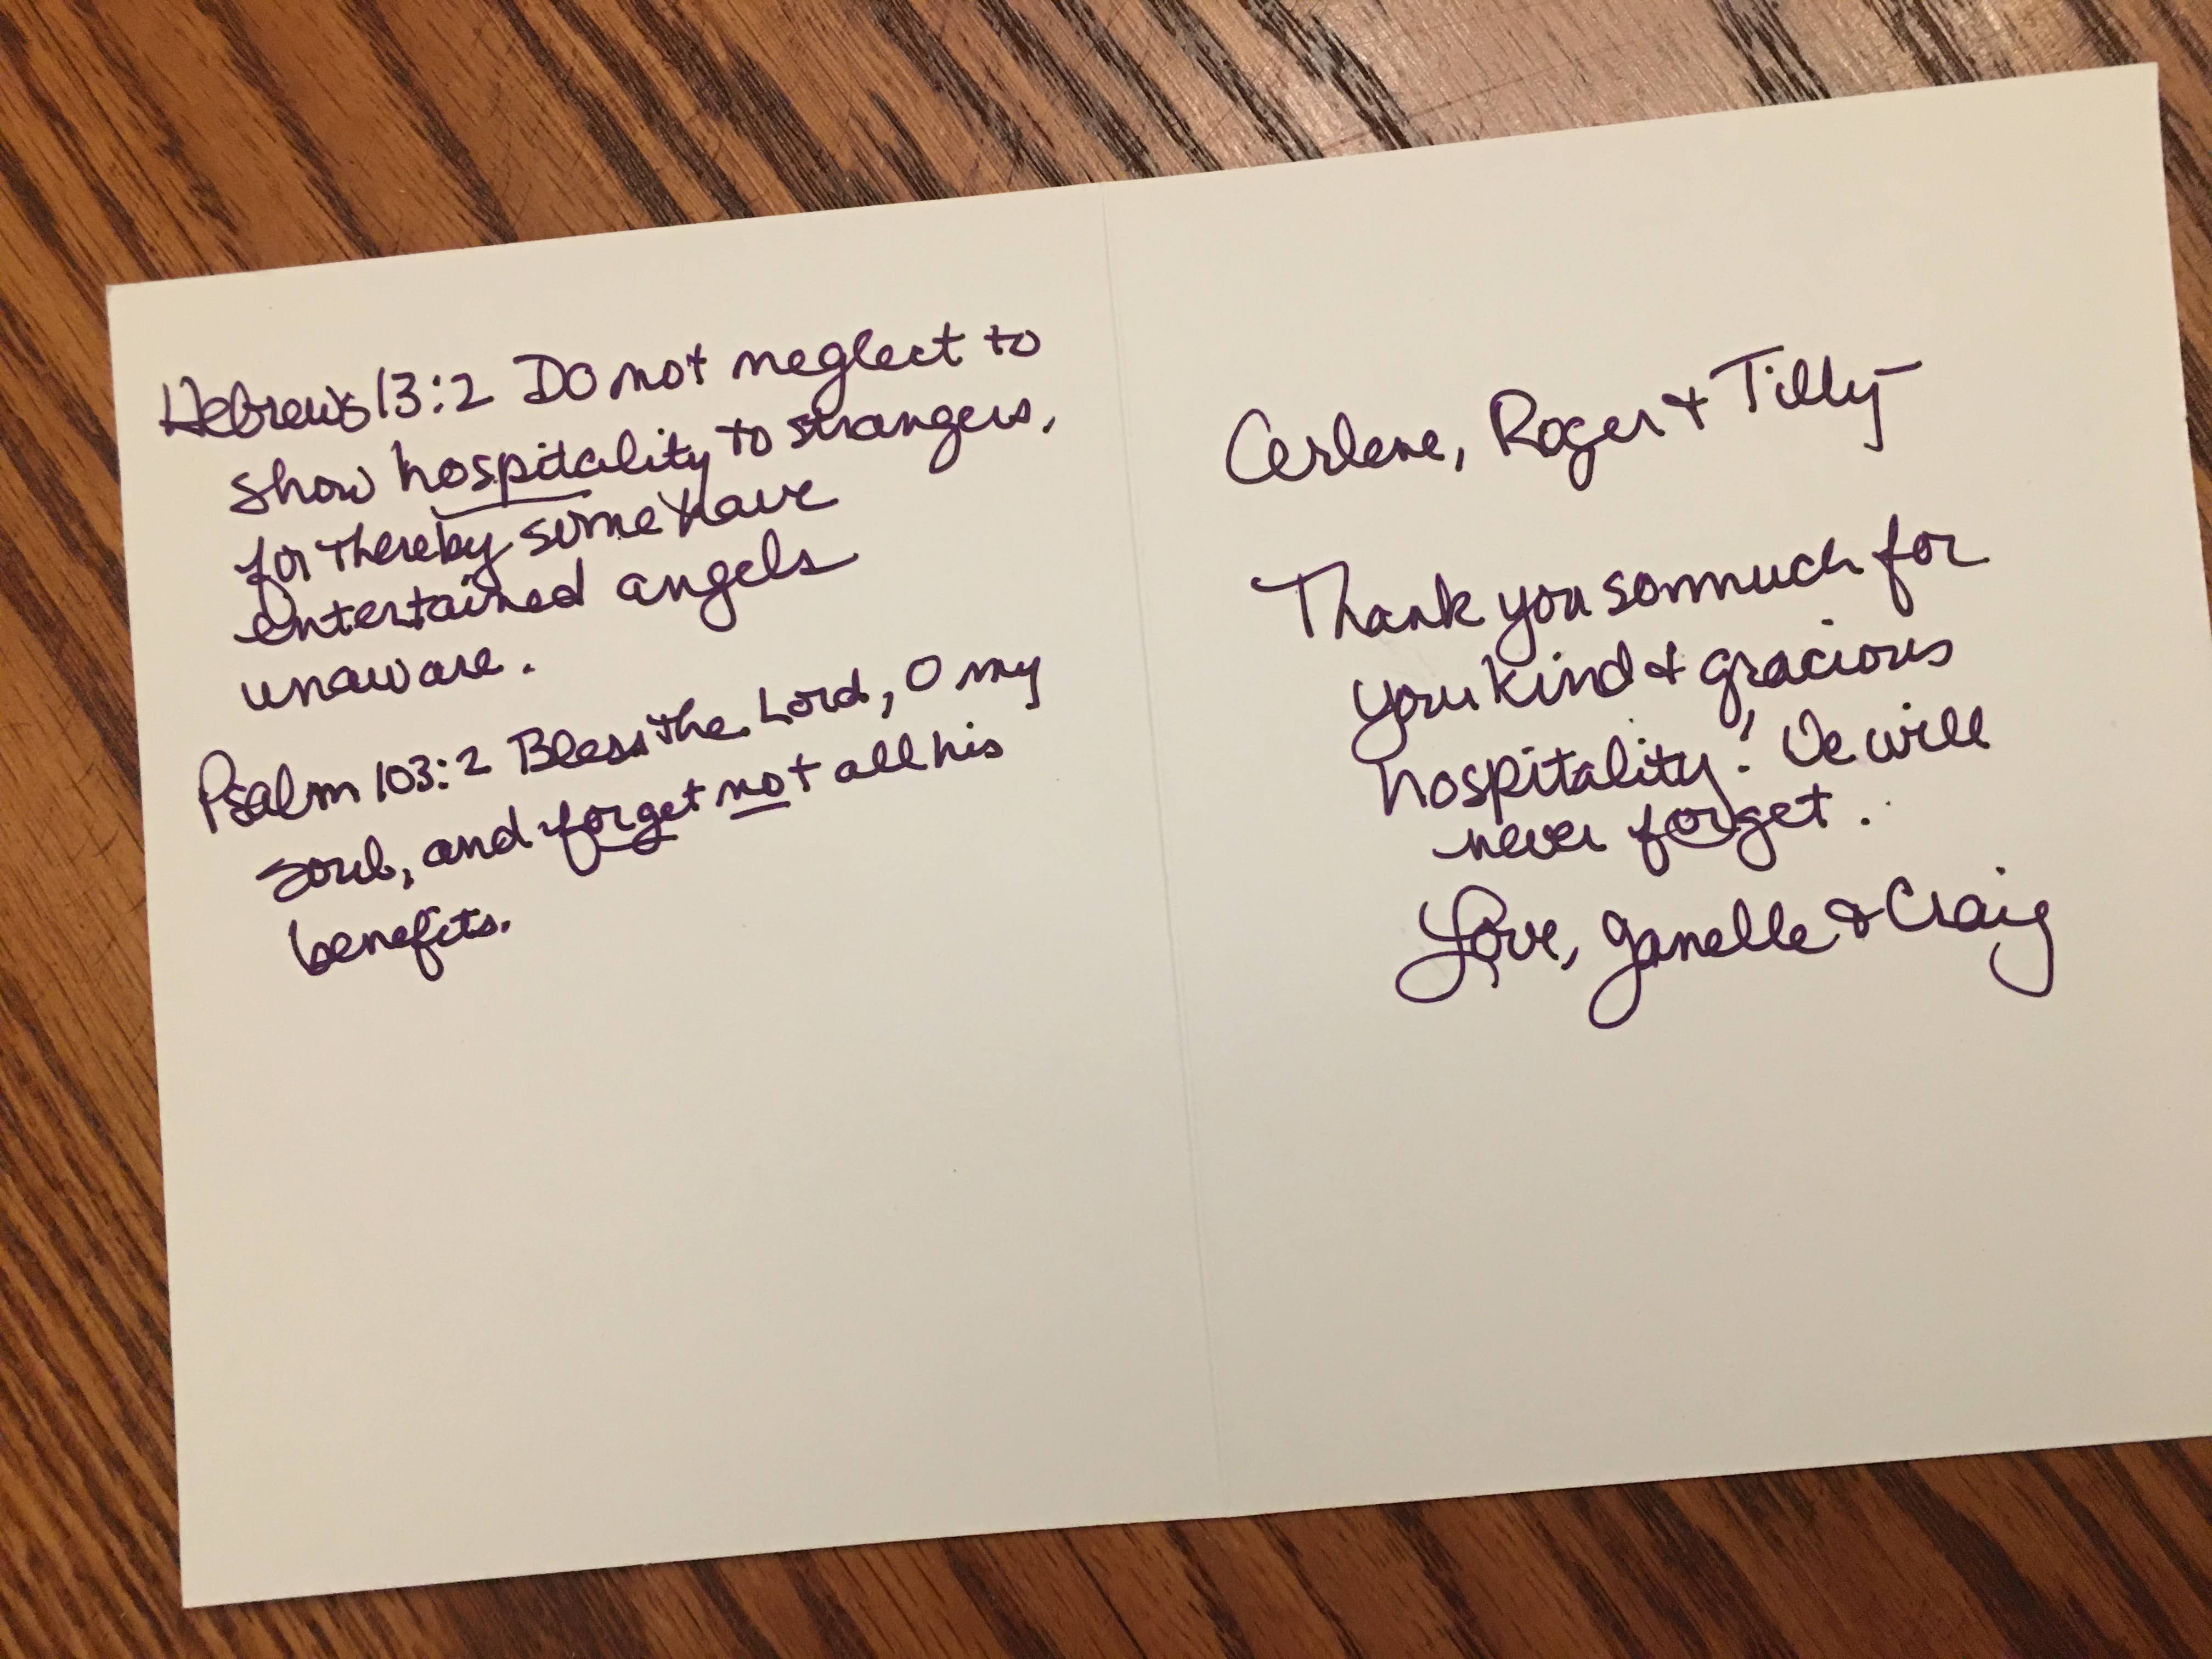 Hebrews 13:2 Do not neglect to
show hospitality to strangers,
for thereby some have
entertained angels
unaware.
Psalm 103:2 Bless the Lord, O my
soul, and forget not all his
benefits.
Carlene, Roger & Tilly-
Thank you so much for
your kind & gracious
hospitality! We will
never forget.
Love, Janelle & Craig